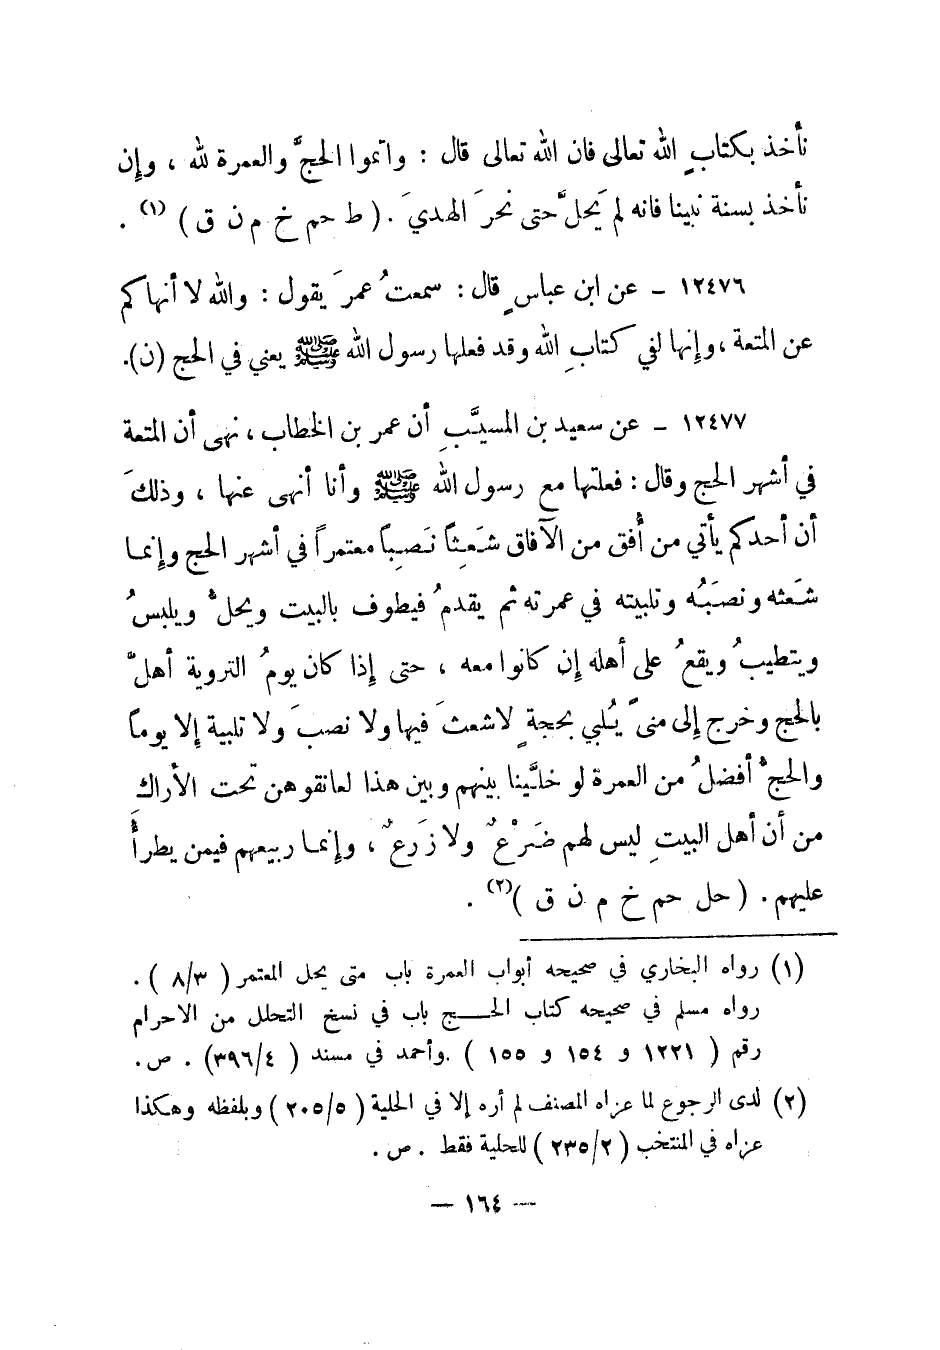 نأخذ بكتابِ الله تعالى فان الله تعالى قال : واتموا الحجَّ والعمرة لله ، وإن
نأخذ بسنة نبينا فانه لم يَحلَّ حتى نحرَ الهديَ . ( ط حم خ م ن ق ) (١) .
١٢٤٧٦ ـ عن ابن عباسٍ قال : سمعتُ عمرَ يقول : والله لا أنهاكم
عن المتعة ، وإنها لفي كتابِ الله وقد فعلها رسول الله ﷺ يعني في الحج (ن).
١٢٤٧٧ ـ عن سعيد بن المسيَّبِ أن عمر بن الخطاب ، نهى أن المتعة
في أشهر الحج وقال : فعلتها مع رسول الله ﷺ وأنا أنهى عنها ، وذلكَ
أن أحدكم يأتي من أُفق من الآفاق شَعِثاً نَصِباً معتمراً في أشهر الحج وإنما
شَعثه ونصَبُه وتلبيته في عمرته ثم يقدمُ فيطوف بالبيت ويحلُّ ويلبسُ
ويتطيبُ ويقعُ على أهله إن كانوا معه ، حتى إذا كان يومُ التروية أهلَّ
بالحج وخرج إلى منىً يُلبي بحجةٍ لاشعثَ فيها ولا نصبَ ولا تلبية إلا يوماً
والحجُّ أفضلُ من العمرة لو خلَّينا بينهم وبين هذا لعانقوهن تحت الأراك
من أن أهل البيتِ ليس لهم ضَرْعٌ ولا زَرعٌ ، وإنما ربيعهم فيمن يطرأُ
عليهم . ( حل حم خ م ن ق )(٢) .
(١) رواه البخاري في صحيحه أبواب العمرة باب متى يحل المعتمر ( ٨/٣ ) .
رواه مسلم في صحيحه كتاب الحـــج باب في نسخ التحلل من الاحرام
رقم ( ١٢٢١ و ١٥٤ و ١٥٥ ) .وأحمد في مسند ( ٣٩٦/٤) . ص .
(٢) لدى الرجوع لما عزاه المصنف لم أره إلا في الحلية ( ٢٠٥/٥ ) وبلفظه وهكذا
عزاه في المنتخب ( ٢٣٥/٢ ) للحلية فقط . ص .
— ١٦٤ —